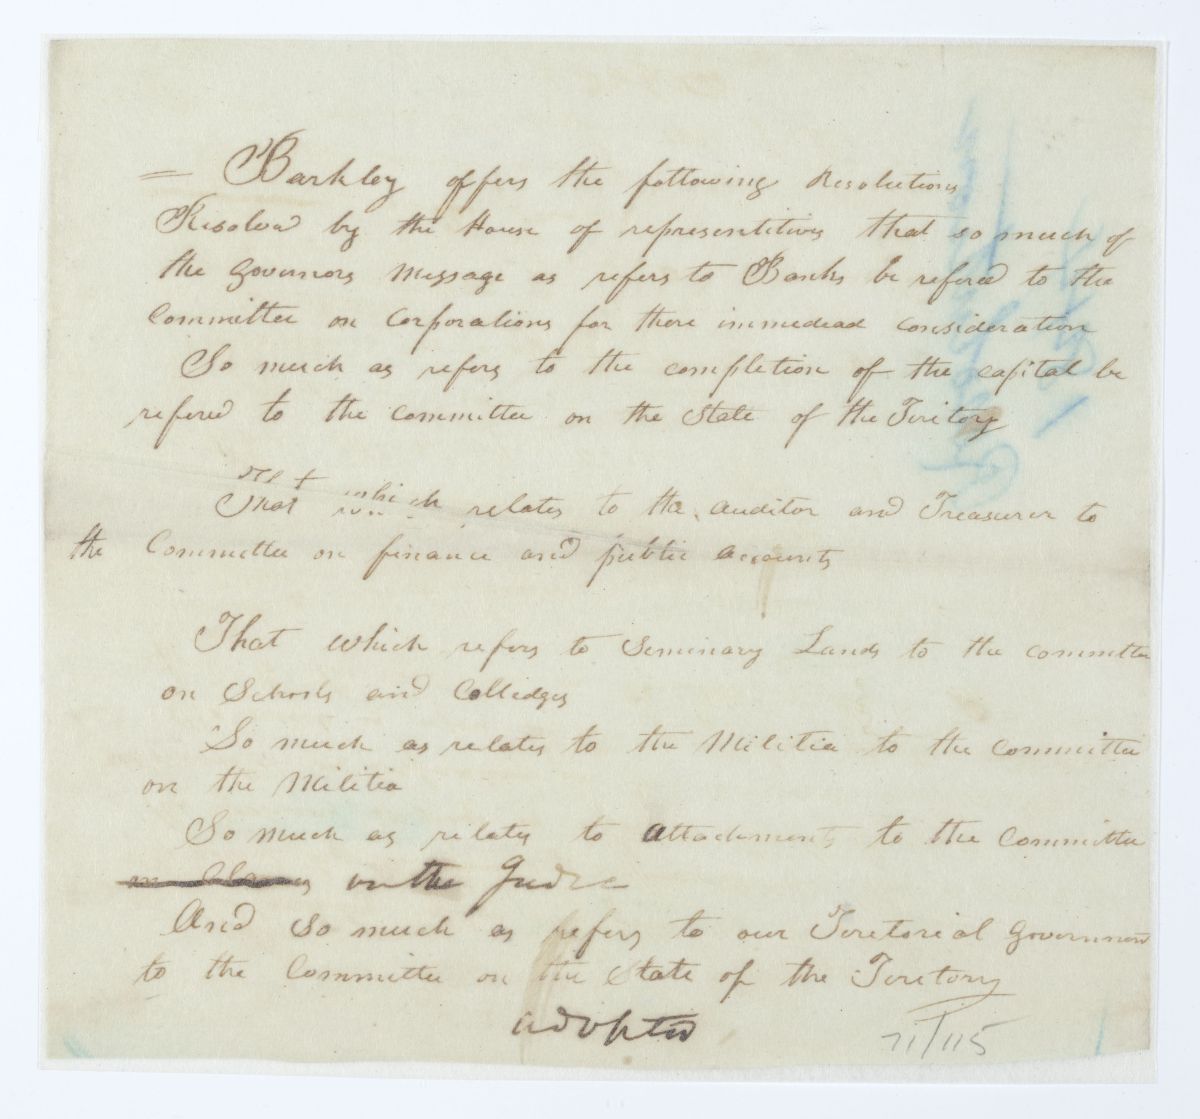 = Barkley offers the following Resolutions
Resolvd by the House of representitives that so much of
the governors message as refers to Banks be refered to the
Committee on corporations for there immedead consideration
So much as refers to the completion of the capital be
refered to the committee on the State of the Teritory
That which relates to the auditor and Treasurer to
the Committee on finance and public accounts
That which refers to Seminary Lands to the committee
on Schools and Colledges
So much as relates to the Militia to the committee
on the Militia
So much as relates to attachments to the Committee
on the Judic
And so much as refers to our Teritorial government
to the Committee on the State of the Teritory
adopted
71/115